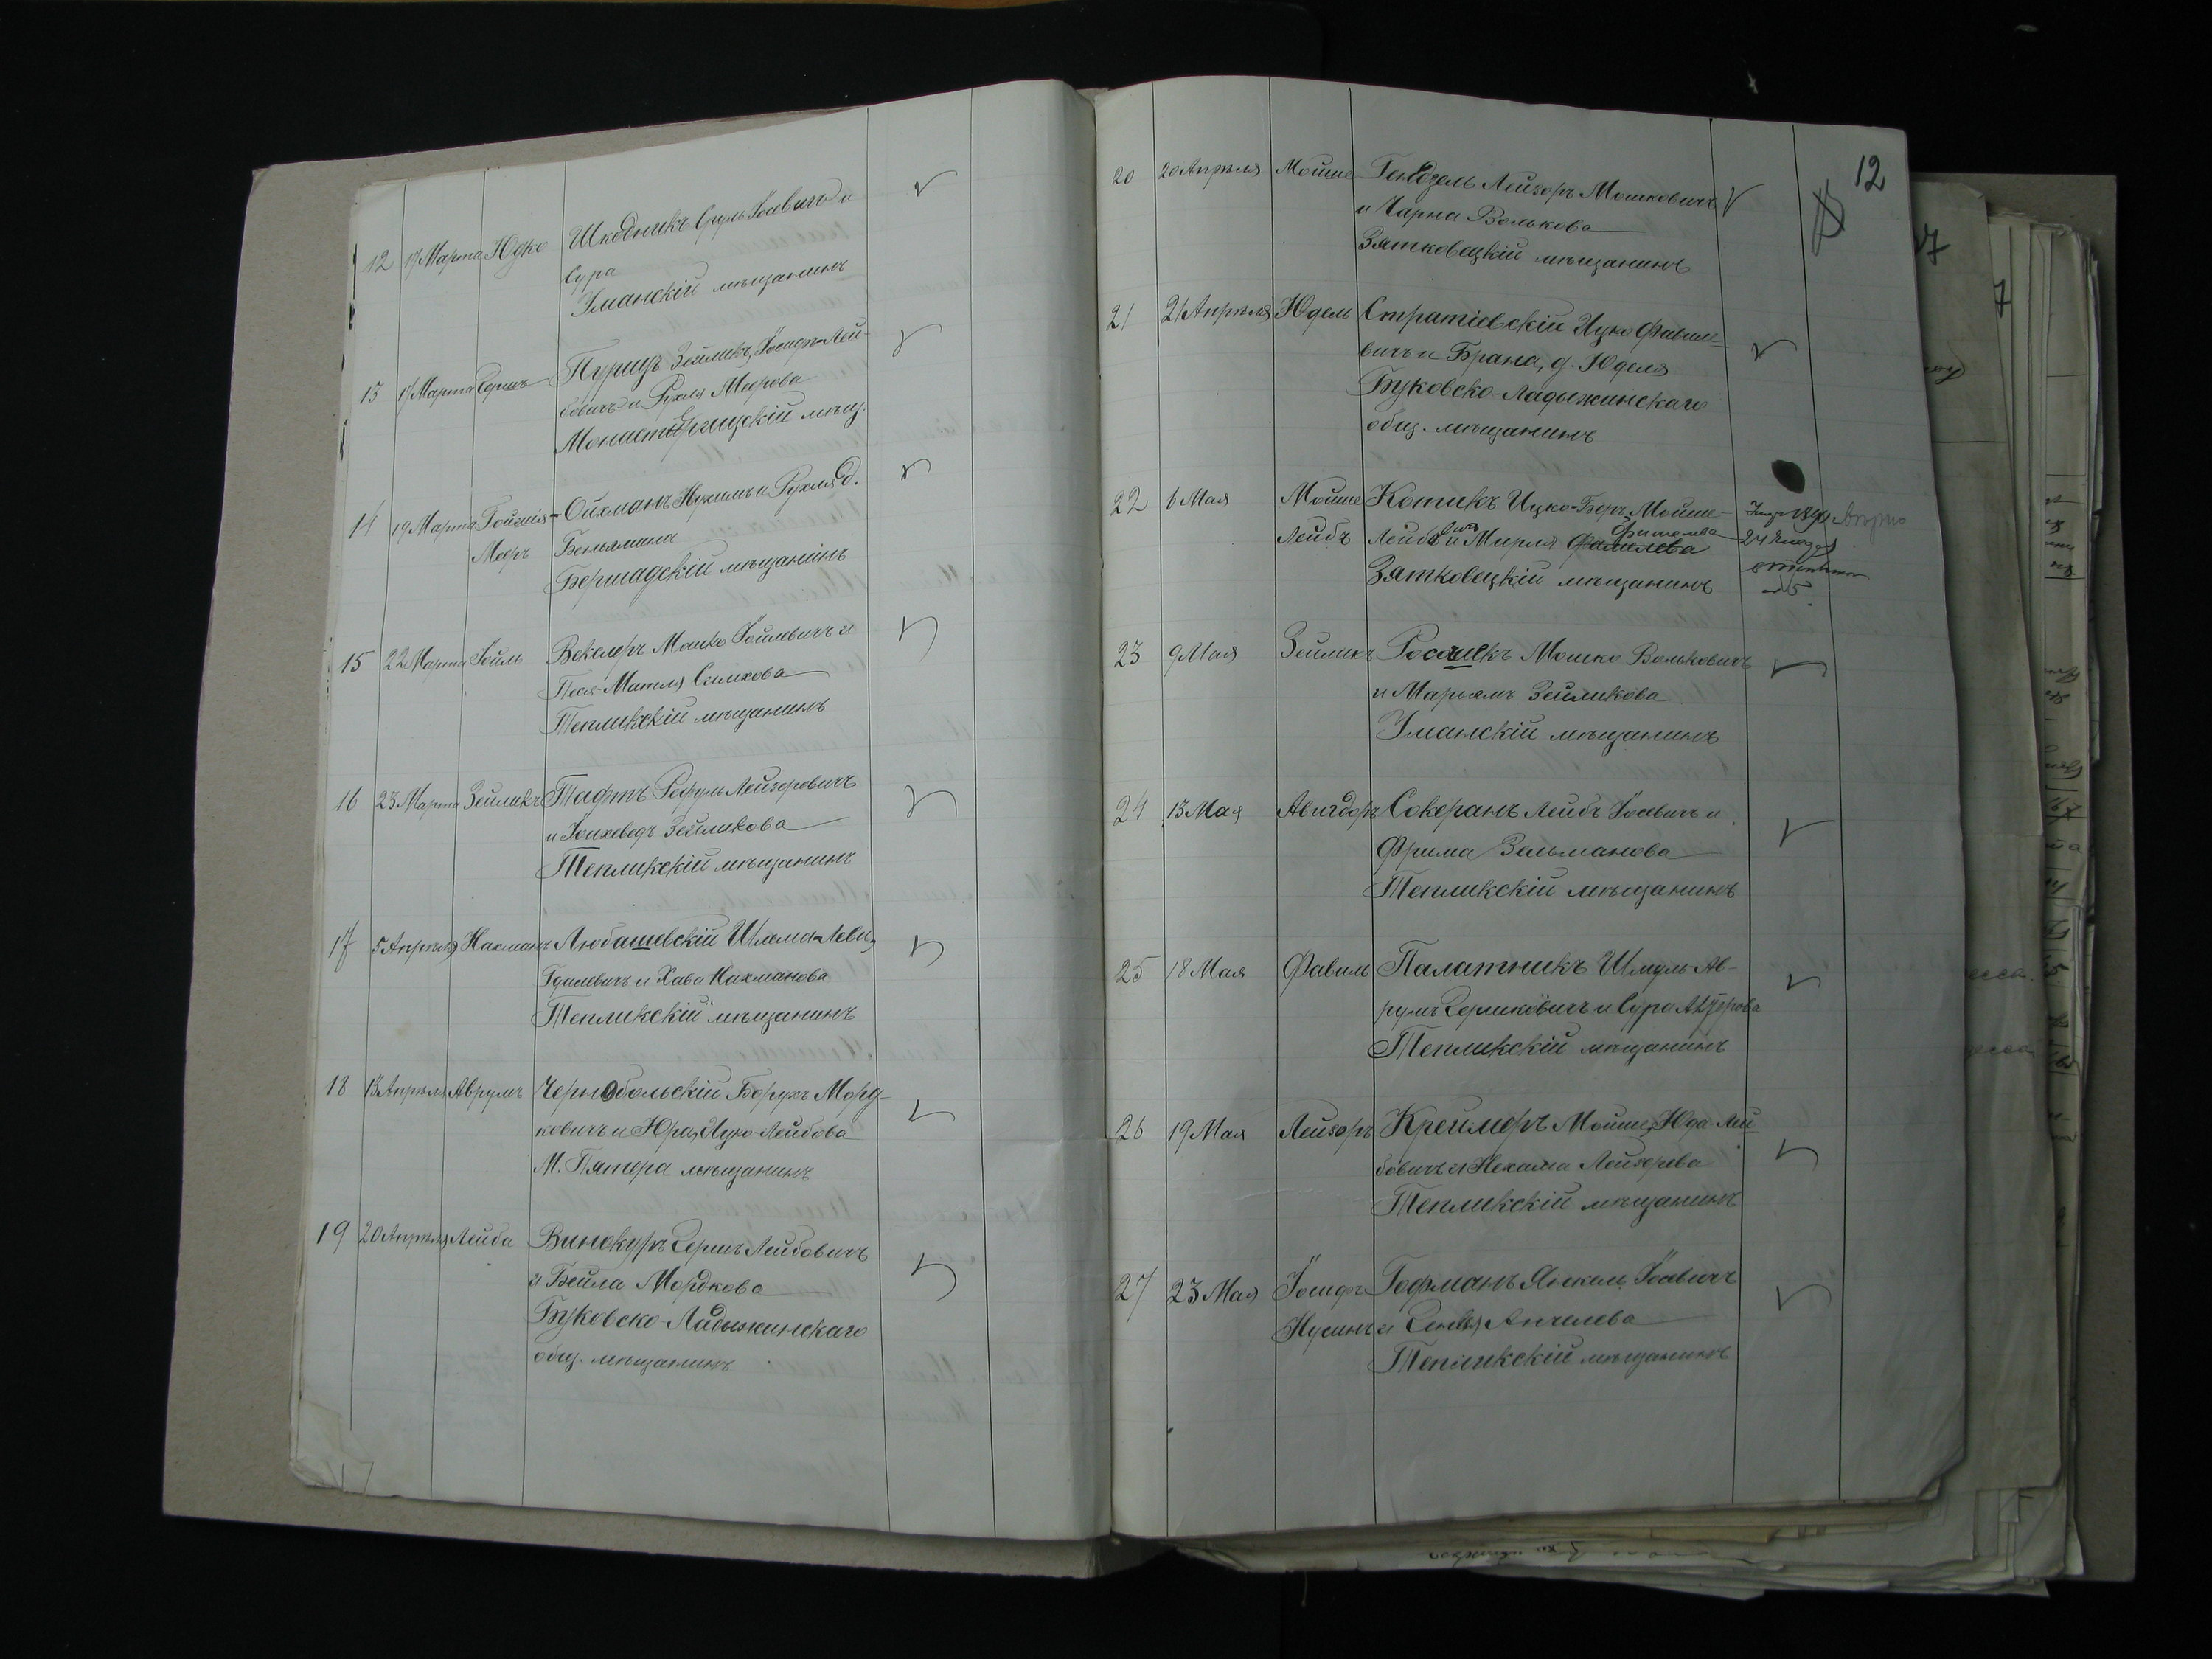 12 17 Марта Юдко Шкодникъ Сруль Іосевичъ и
Сура
Уманскій мѣщанинъ
13 17 Марта Гершъ Пурицъ Зейликъ, Іосифъ-Лей-
бовичъ и Рухля Меерова
Монастырищскій мѣщ.
14 19 Марта Ойхманъ Нухимъ и Рухля д.
Мееръ Беньямина
Бершадскій мѣщанинъ
15 22 Марта Іойль Векслеръ Мошко Іойлевичъ и
Песя-Матля Симхова
Тепликскій мѣщанинъ
16 23 Марта Зейликъ Тафтъ Рефуль Лейзоровичъ
и Іохеведъ Зейликова
Тепликскій мѣщанинъ
17 5 Апрѣля Нахманъ Любашевскій Шлема-Леви,
Гдалевичъ и Хава Нахманова
Тепликскій мѣщанинъ
18 13 Апрѣля Аврумъ Чернобольскій Борухъ Морд-
ковичъ и Юра, Ицко-Лейбова
М. Пятера мѣщанинъ
19 20 Апрѣля Лейба Винокуръ Гершъ Лейбовичъ
и Бейла Мордкова
Буковско-Ладыжинскаго
общ. мѣщанинъ
12
20 20 Апрѣля Мойше Гендзель Лейзоръ Мошковичъ
и Чарна Волькова
Зятковецкій мѣщанинъ
21 21 Апрѣля Юдель Стратіевскій Ицко Фавиле-
вичъ и Брана, д. Юделя
Буковско-Ладыжинскаго
общ. мѣщанинъ
22 6 Мая Мойше Котикъ Ицко-Беръ Мойше-
Лейбъ Лейбовичъ и Мирля Фишелева
Зятковецкій мѣщанинъ
23 9 Мая Зейликъ Мошко Вольковичъ
и Марьямъ Зейликова
Уманскій мѣщанинъ
24 13 Мая Авигдоръ Сокеранъ Лейбъ Іосевичъ и
Фрима Зельманова
Тепликскій мѣщанинъ
25 18 Мая Фавиль Палатникъ Шмуль-Ав-
румъ Гершковичъ и Сура
Тепликскій мѣщанинъ
26 19 Мая Лейзоръ Креймеръ Мойше, Юда-Лей-
бовичъ и Нехама Лейзорова
Тепликскій мѣщанинъ
27 23 Мая Іосифъ Гофманъ Янкель Іосевичъ
Нусинъ и Анчелева
Тепликскій мѣщанинъ